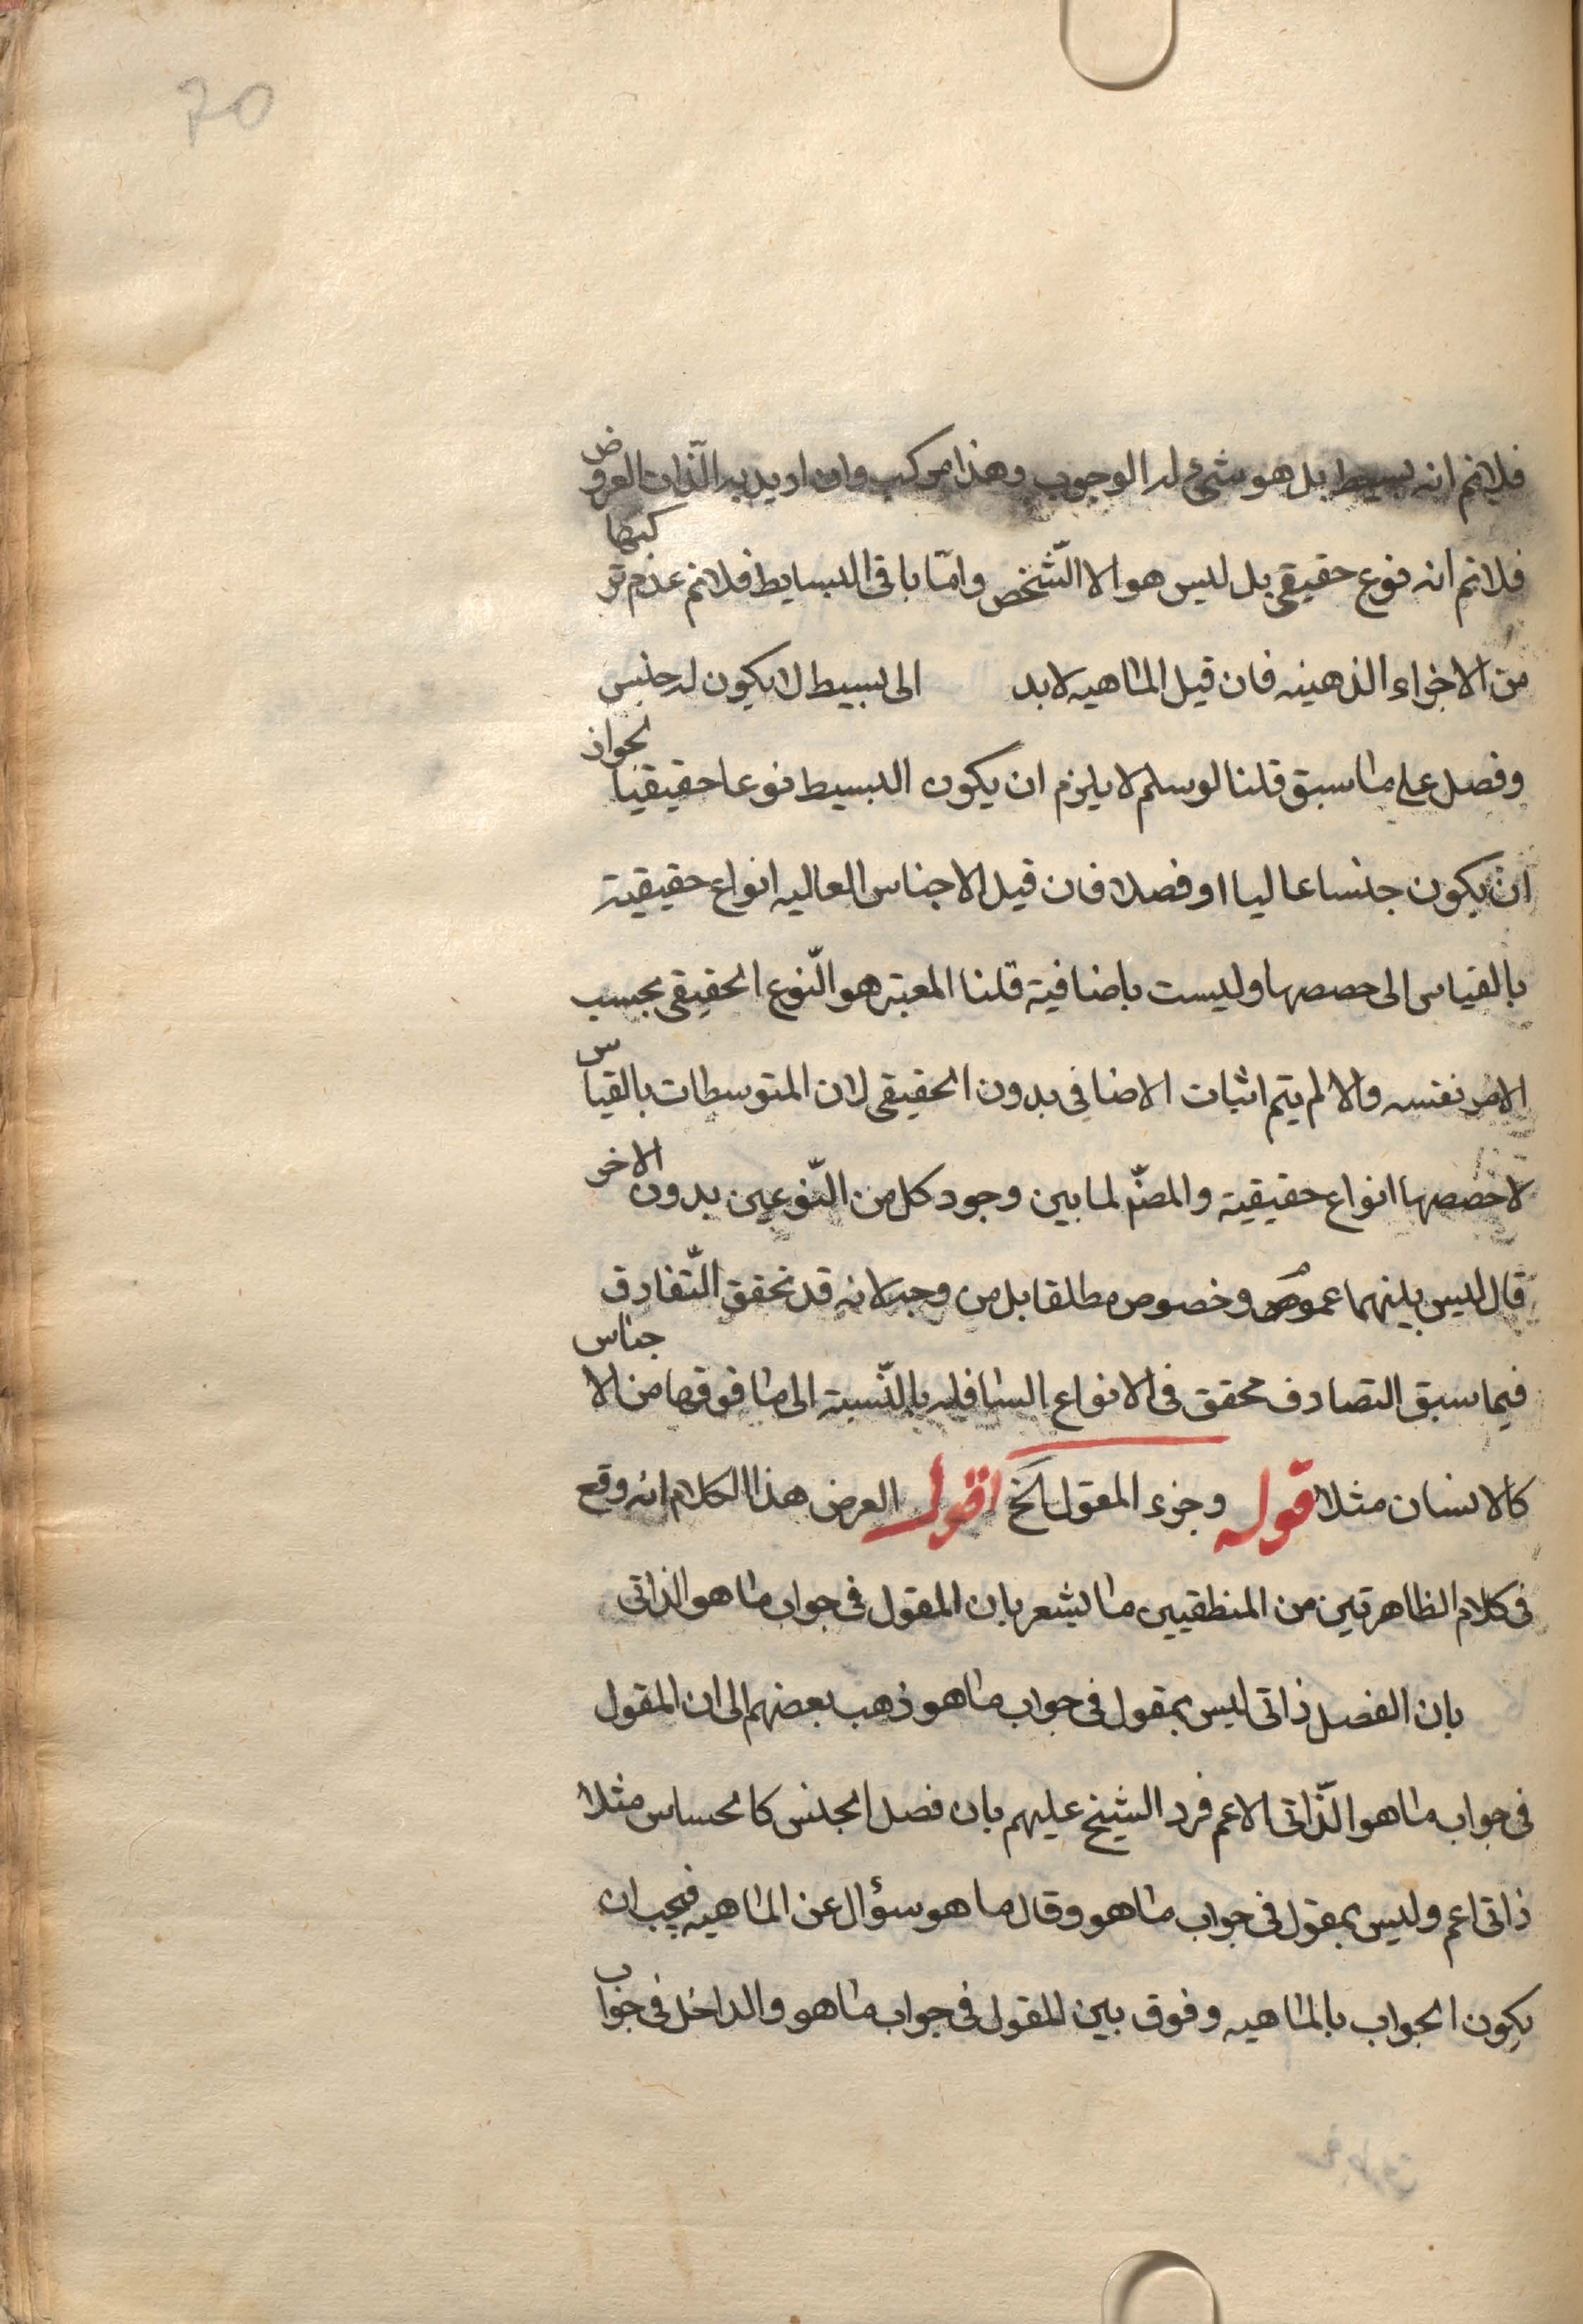 70
فلانم انه بسيط بل هو شئ له الوجوب وهذا مركب وان اريد به الذّات المعروض
فلانم انه نوع حقيقى بل ليس هو الا الشّخص وامّا باقى البسايط فلانم عدم تركبها
من الاجزاء الذهنيه فان قيل الماهيه لابد الى بسيط لا يكون له جنس
وفصل على ما سبق قلنا لو سلم لا يلزم ان يكون البسيط نوعا حقيقيا لجواز
ان يكون جنسا عاليا او فصلا فان قيل الاجناس العاليه انواع حقيقية
بالقياس الى حصصها وليست باضافية قلنا المعتبر هو النّوع الحقيقى بحسب
الامر نفسه والا لم يتم اثبات الاضافى بدون الحقيقى لان المتوسطات بالقياس
لاحصصها انواع حقيقية والمصنّ لما بين وجود كل من النّوعين بدون الاخر
قال ليس بينهما عموم وخصوص مطلقا بل من وجه لانه قد تحقق التّفارق
فيما سبق التصادف محقق فى الانواع السافله بالنّسبة الى ما فوقها من الاجناس
كالانسان مثلا قوله وجزء المقول الخ اقول الغرض هذا الكلام انه وقع
فى كلام الظاهرتين من المنطقيين ما يشعر بان المقول فى جواب ما هو الذاتى
بان الفصل ذاتى ليس بمقول فى جواب ما هو ذهب بعضهم الى ان المقول
فى جواب ما هو الذّاتى الاعم فرد الشيخ عليهم بان فصل الجنس كالحساس مثلا
ذاتى اعم وليس بمقول فى جواب ما هو وقال ما هو سؤال عن الماهيه فيجب ان
يكون الجواب بالماهيه وفوق بين المقول فى جواب ما هو والداخل فى جواب